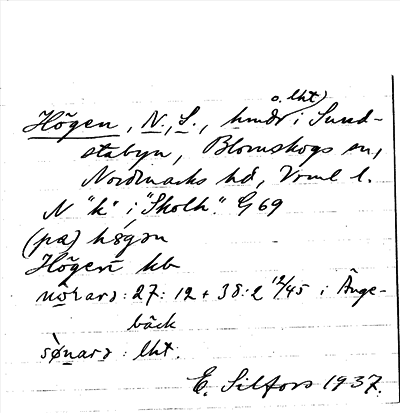 o. lht)
Högen, N., S., hmdr i Sund-
stabyn, Blomskogs sn,
Nordmarks hd, Vrml l.
N "k" i "Skolh." G69
(pα) hεgən
Högen kb
norarə : 27: 12 + 38:2 12/45 i Ånge-
bäck
sønarə : lht.
E. Silfors 1937.